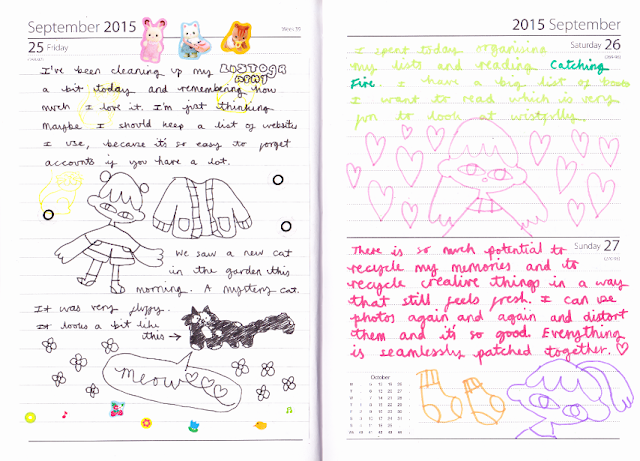 September 2015
Week 39
25 Friday
I've been cleaning up my
a bit today and remembering how
much I love it. I'm just thinking
maybe I should keep a list of websites
I use, because it's so easy to forget
accounts if you have a lot.
We saw a new cat
in the garden this
morning. A mystery cat.
It was very fluffy.
It looks a bit like
this →
Meow
2015 September
Saturday 26
I spent today organising
my lists and reading Catching
Fire. I have a big list of books
I want to read which is very
fun to look at wistfully.
Sunday 27
There is so much potential to
recycle my memories and to
recycle creative things in a way
that still feels fresh. I can use
photos again and again and distort
them and it's so good. Everything
is seamlessly patched together. ♡
October